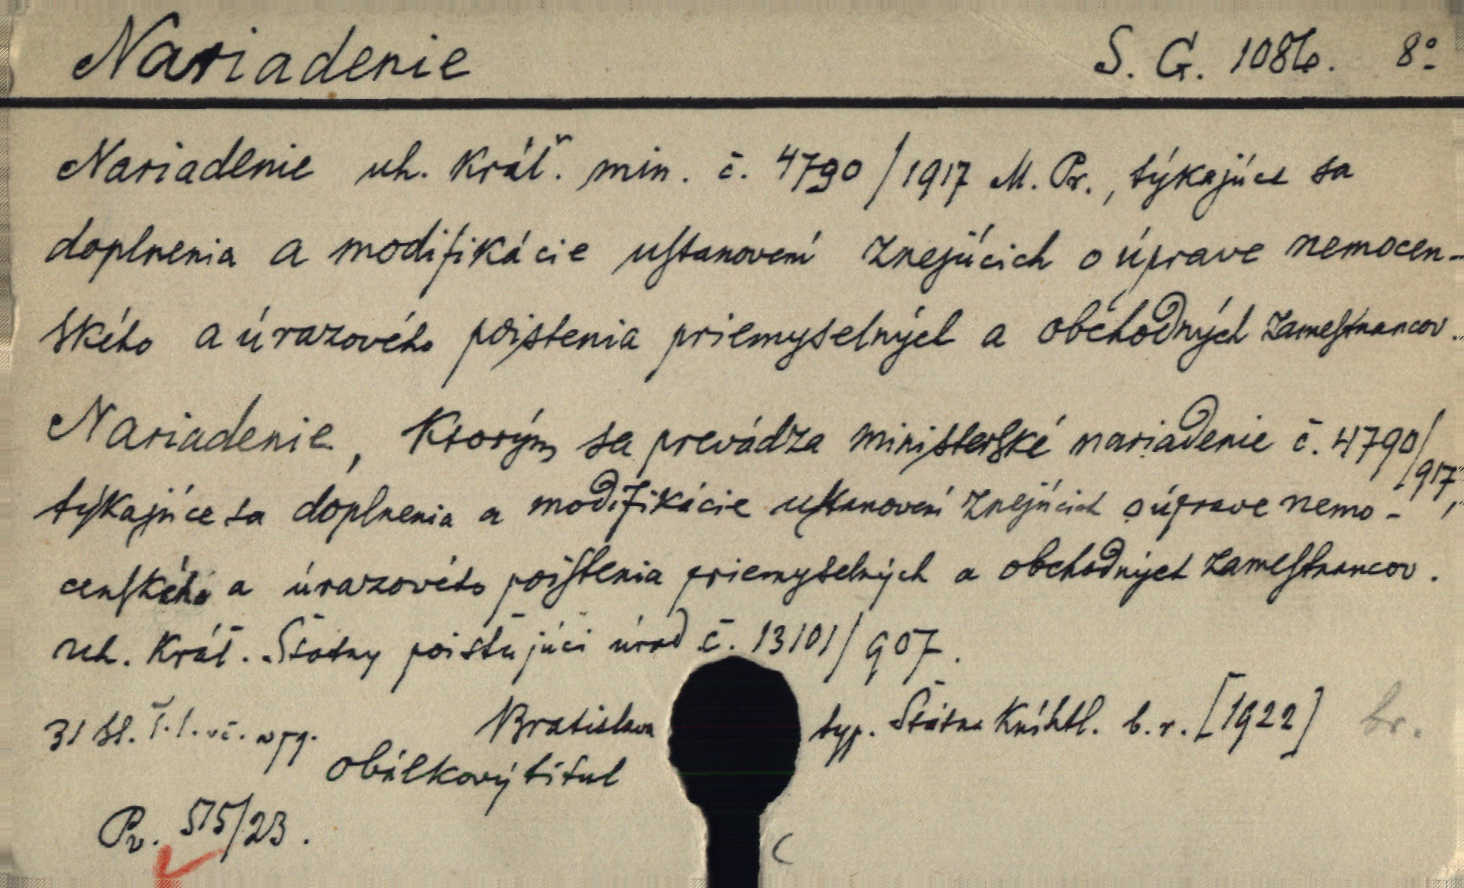 Nariadenie S. G. 1086. 8°
Nariadenie uh. kráľ. min. č. 4790/1917 M. Pr., týkajúce sa
doplnenia a modifikácie ustanovení znejúcich o úprave nemocen-
ského a úrazového poistenia priemyselných a obchodných zamestnancov.
Nariadenie, ktorým sa prevádza ministerské nariadenie č. 4790/917,
týkajúce sa doplnenia a modifikácie ustanovení znejúcich o úprave nemo-
cenského a úrazového poistenia priemyselných a obchodných zamestnancov.
uh. kráľ. Štátny poisťujúci úrad č. 13101/907.
31 st. Bratislava typ. Štátna kníhtl. b. r. [1922] br.
obálkový titul
Pv. 515/23.
C